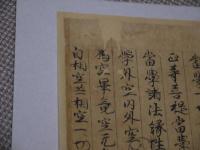 正等菩提當
當學諸法緣性
學外空内外空
為空畢竟空无
自相空共相空一切